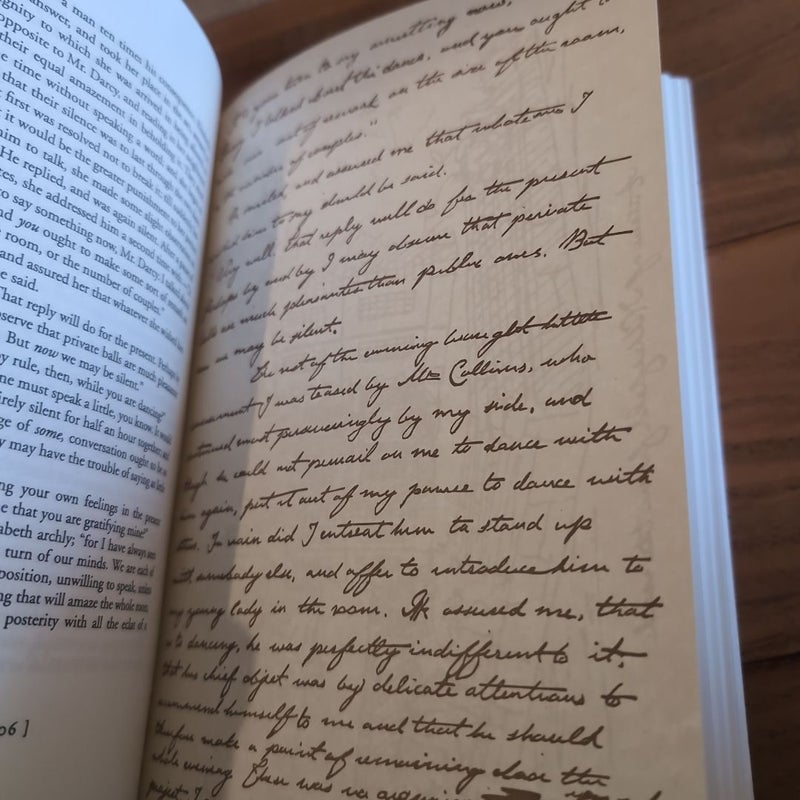 a man ten times his
answer, and took her place in the
dignity to which she was arrived in being
opposite to Mr. Darcy, and reading in
their equal amazement in beholding it. They
time without speaking a word; and she
that their silence was to last through the
first was resolved not to break it; till
it would be the greater punishment to her
him to talk, she made some slight
He replied, and was again silent. After a
tes, she addressed him a second time with
to say something now, Mr. Darcy. I talked
nd you ought to make some sort of remark
room, or the number of couples."
and assured her that whatever she wished
e said.
That reply will do for the present. Perhaps
serve that private balls are much pleasanter
But now we may be silent."
y rule, then, while you are dancing?"
ne must speak a little, you know. It would
irely silent for half an hour together; and
ge of some, conversation ought to be so
y may have the trouble of saying as little
ng your own feelings in the present
e that you are gratifying mine?"
abeth archly; "for I have always seen
turn of our minds. We are each of
position, unwilling to speak, unless
ng that will amaze the whole room,
posterity with all the eclat of a
06 ]
your turn to say something now,
I talked about the dance, and you ought to
sort of remark on the size of the room,
number of couples."
He smiled and assured me that whatever I
wished him to say should be said.
Very well, that reply will do for the present
Perhaps by and by I may observe that private
balls are much pleasanter than public ones. But
now we may be silent.
The rest of the evening brought little
amusement I was teased by Mr Collins, who
continued most perseveringly by my side, and
though he could not prevail on me to dance with
him again, put it out of my power to dance with
others. In vain did I entreat him to stand up
with somebody else, and offer to introduce him to
any young lady in the room. He assured me, that
as to dancing, he was perfectly indifferent to it;
that his chief object was by) delicate attentions to
recommend himself to me and that he should
therefore make a point of remaining close the
whole evening. There was no
project I